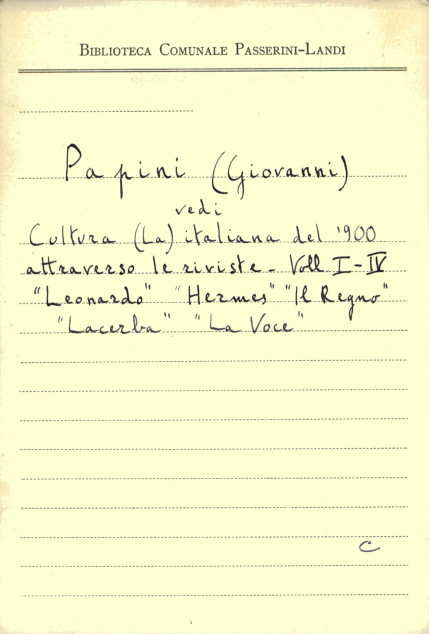 BIBLIOTECA COMUNALE PASSERINI-LANDI
Papini (Giovanni)
vedi
Cultura (La) italiana del '900
attraverso le riviste - Voll I-IV
"Leonardo" "Hermes" "Il Regno"
"Lacerba" "La Voce"
C